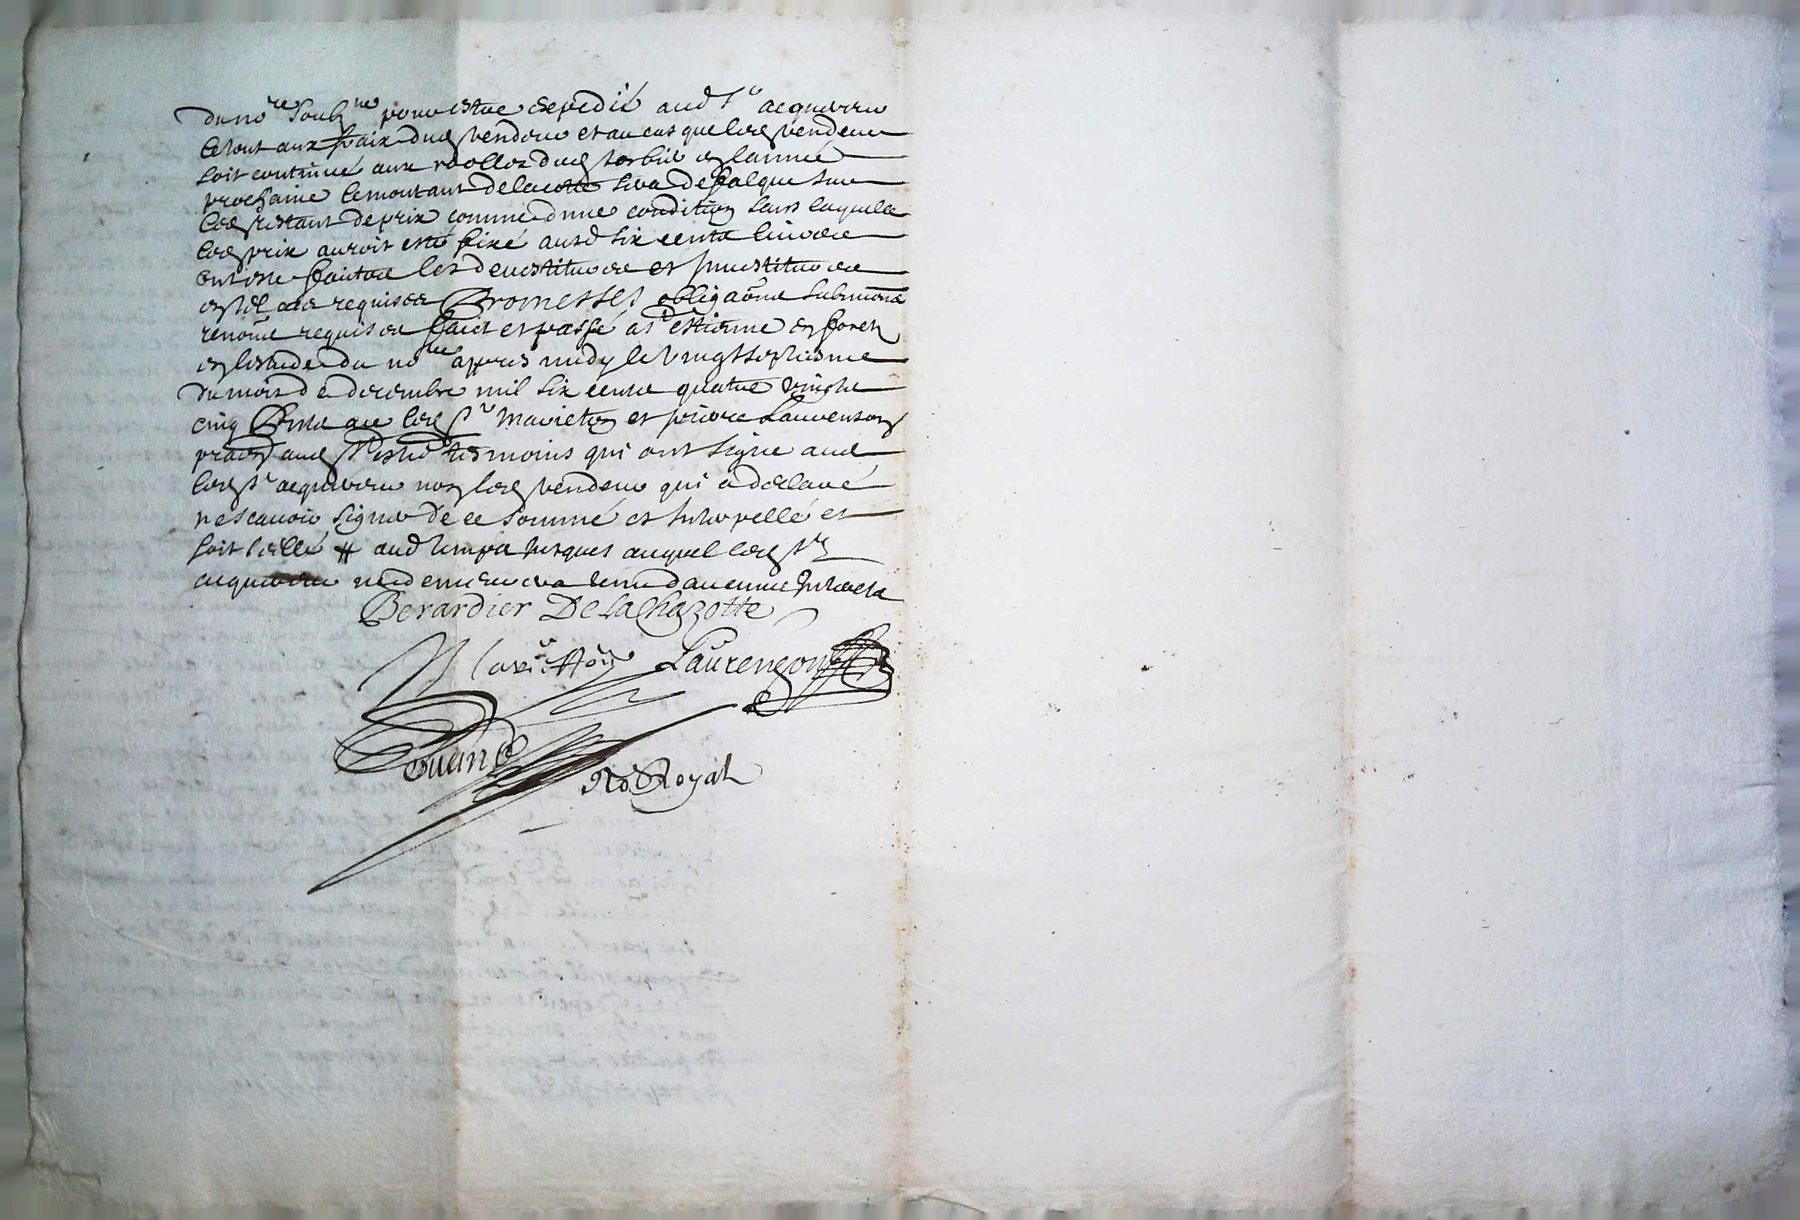 du no.re soub.ne pour estre expedié aud sr acquereur
le tout aux fraix dud vendeur et au cas que led vendeur
soit continué aux roolles dud en l'année
prochaine le montant de la cotte sera defalqué sur
led restant de prix comme d'une condition sans laquelle
led prix auroit esté fixé ausd six cents livres
les devestitures et investitures
requises Promesses obligaôns submiôns
renoñ requises faict et passé a st estienne en forez
en l'estude du no.re appres midy le vingt septiesme
du mois de decembre mil six cents quatre vingts
cinq sr Mavieton et pierre Laurenson
aud st esti.e tesmoins qui ont signé avec
led sr acquereur non led vendeur qui a declaré
ne scavoir signer de ce sommé et interpellé et
soit scellé # aud temps jusques auquel led sr
acquereur ne demeurera tenu d'aucuns interests
Berardier De la Chazotte
Laurenson
No.e Royal